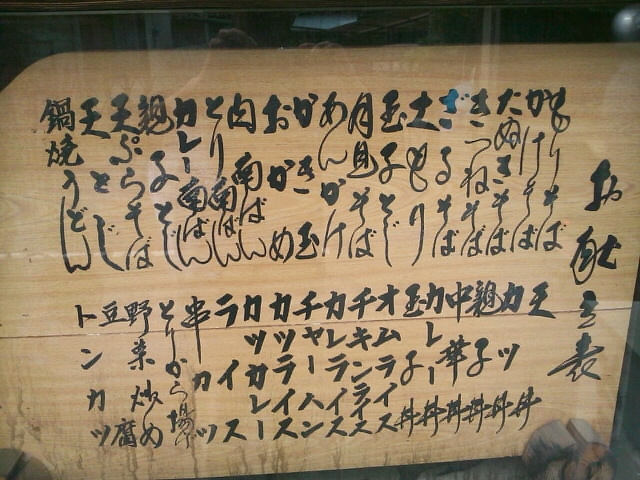 お献立表
もりそば
かけそば
たぬきそば
きつねそば
ざるそば
大もり
玉子とじ
月見そば
あんかけ
かき玉
おかめ
肉南ばん
とり南ばん
カレー南ばん
親子とじ
天ぷらそば
天とじ
鍋焼うどん
天丼
カツ丼
親子丼
中華丼
カレー丼
玉子丼
オムライス
チキンライス
カレーライス
チャーハン
カツライス
カツカレー
ライス
串カツ
とりから揚げ
野菜炒め
豆腐
トンカツ